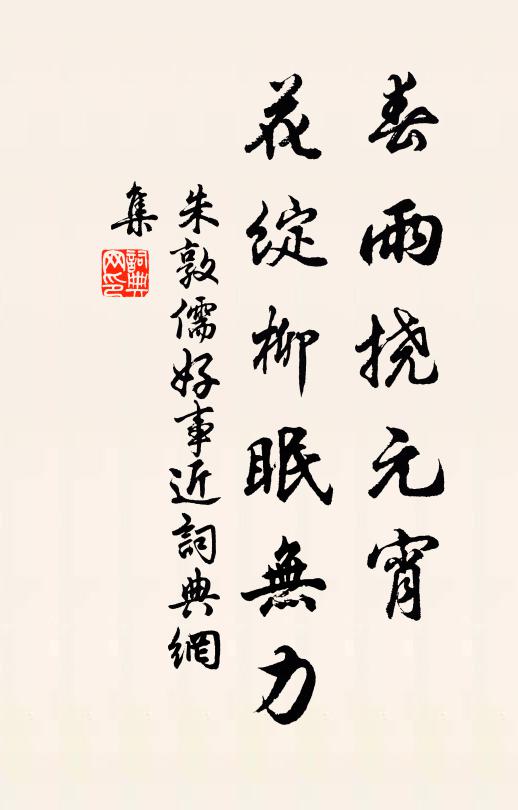 春雨挠元宵
花綻柳眠無力
朱敦儒好事近詞典網
集
詞典网印